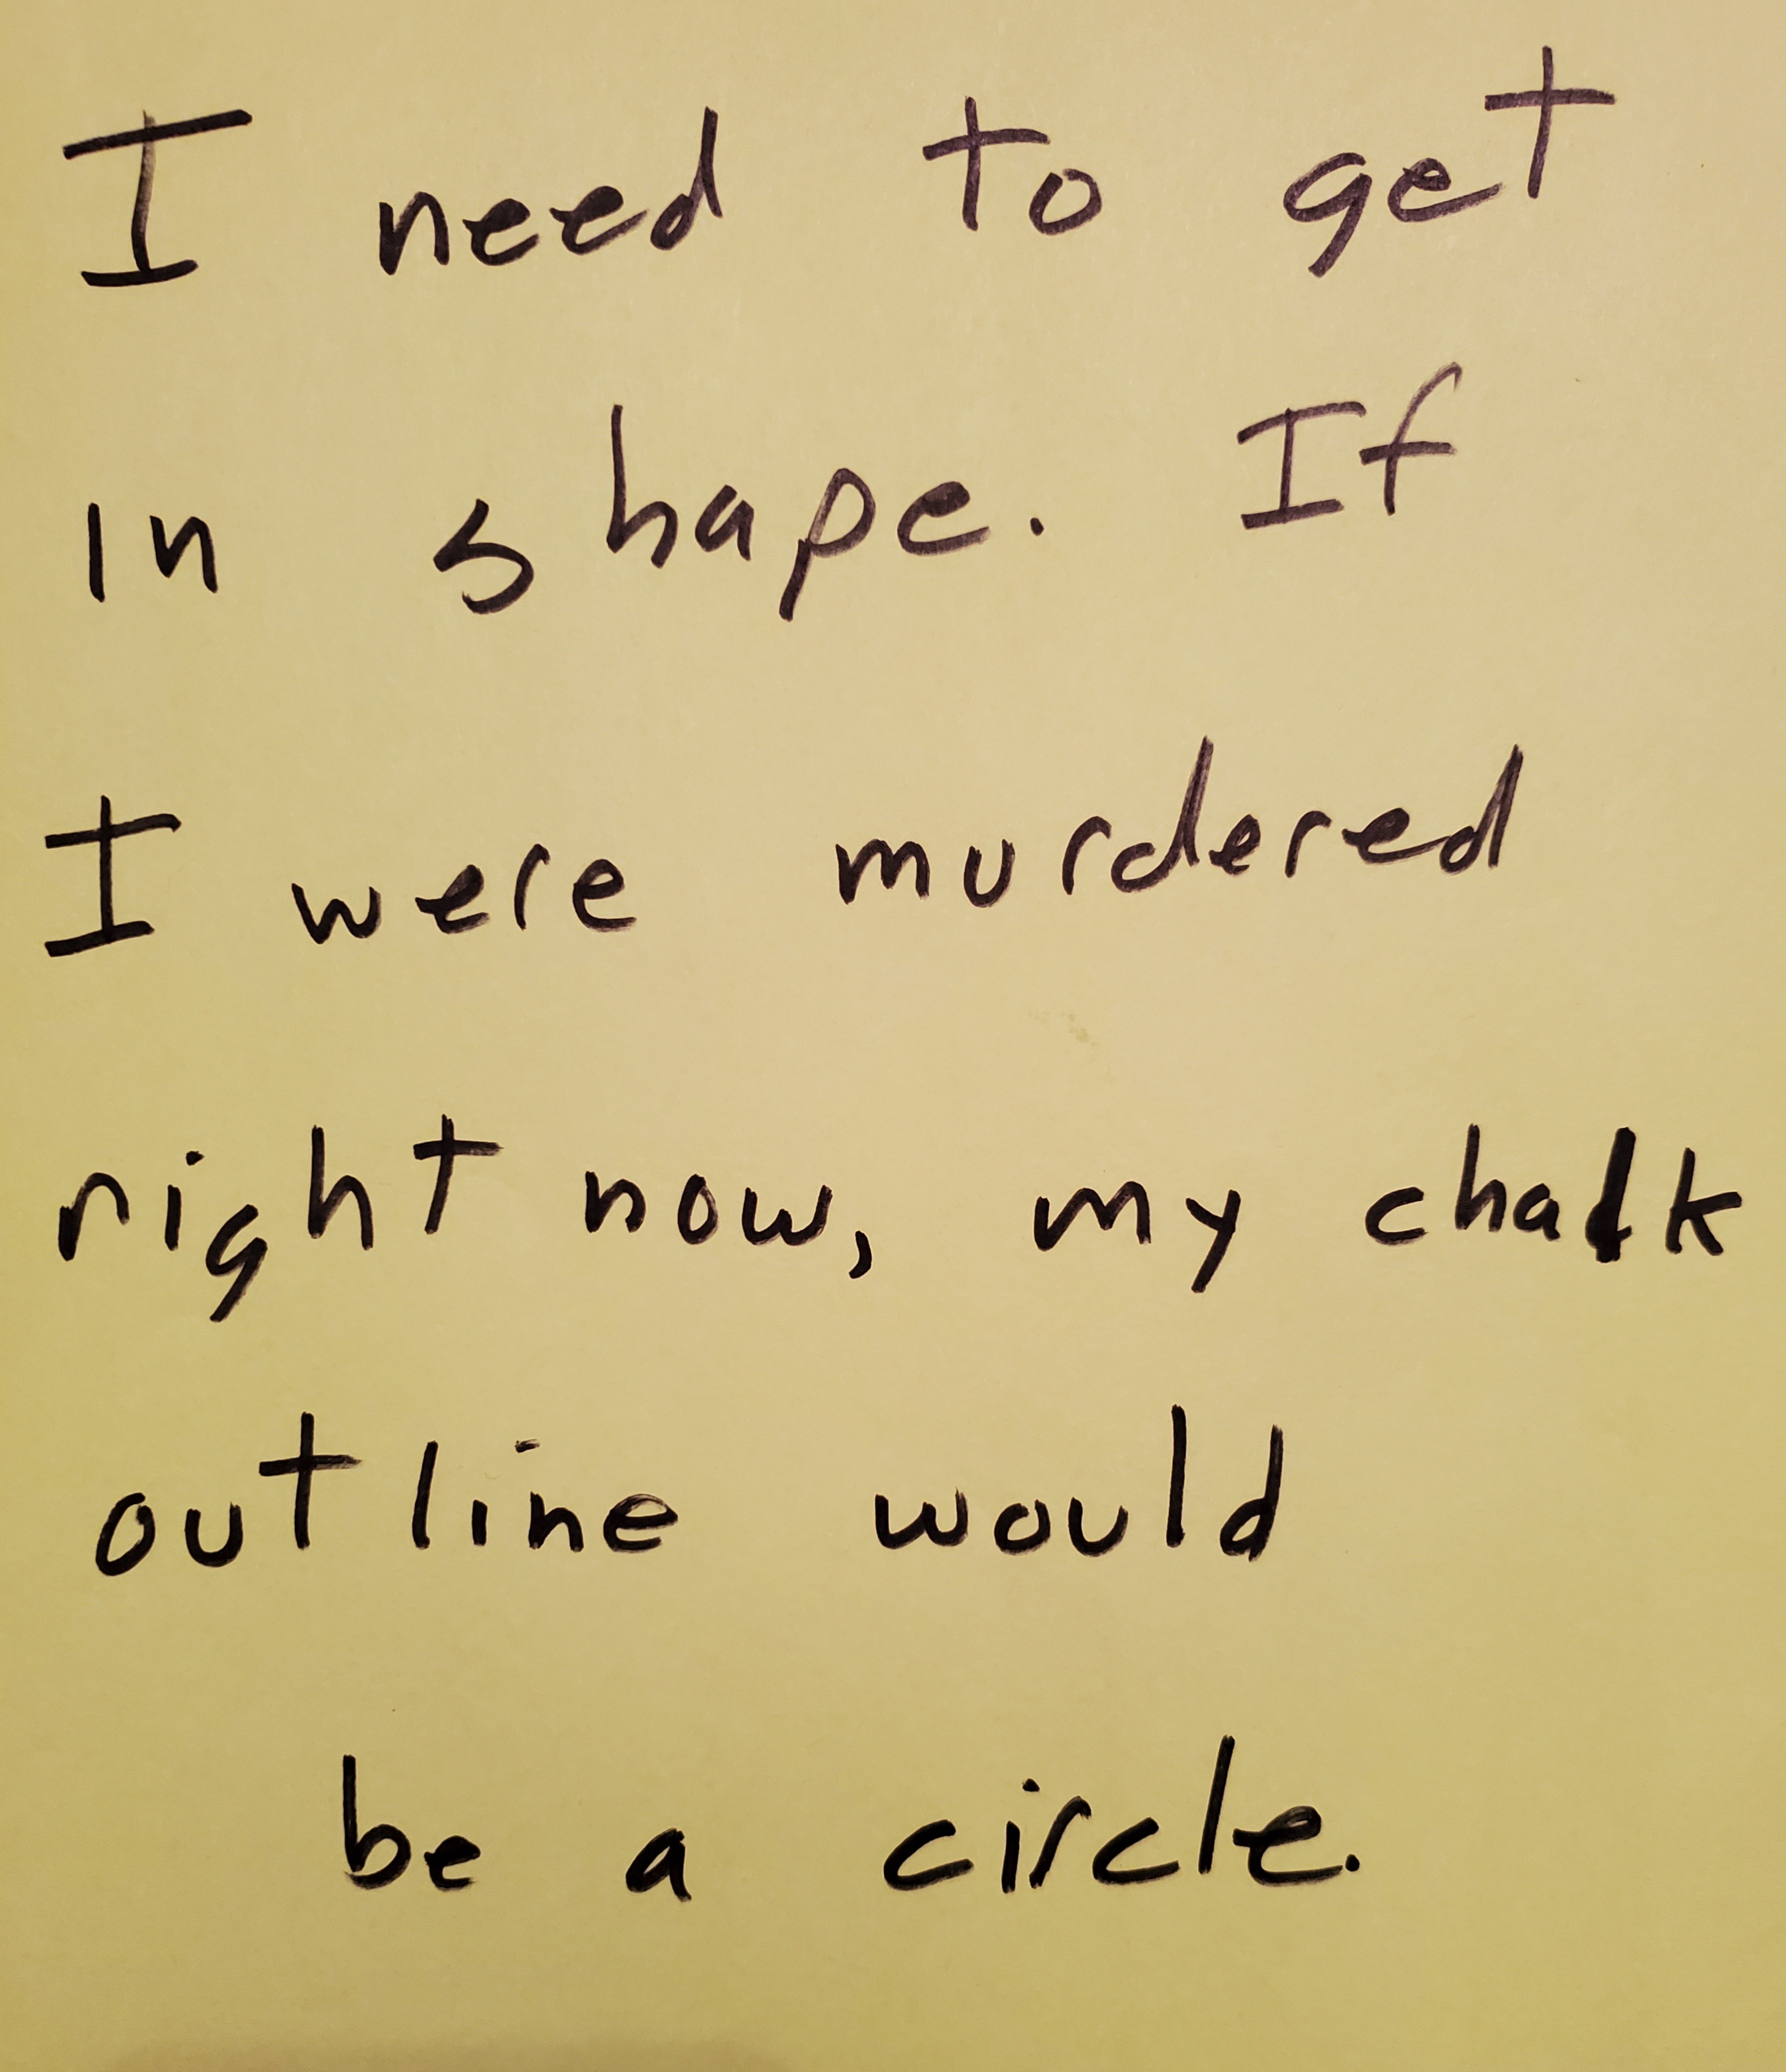 I need to get
in shape. If
I were murdered
right now, my chalk
outline would
be a circle.